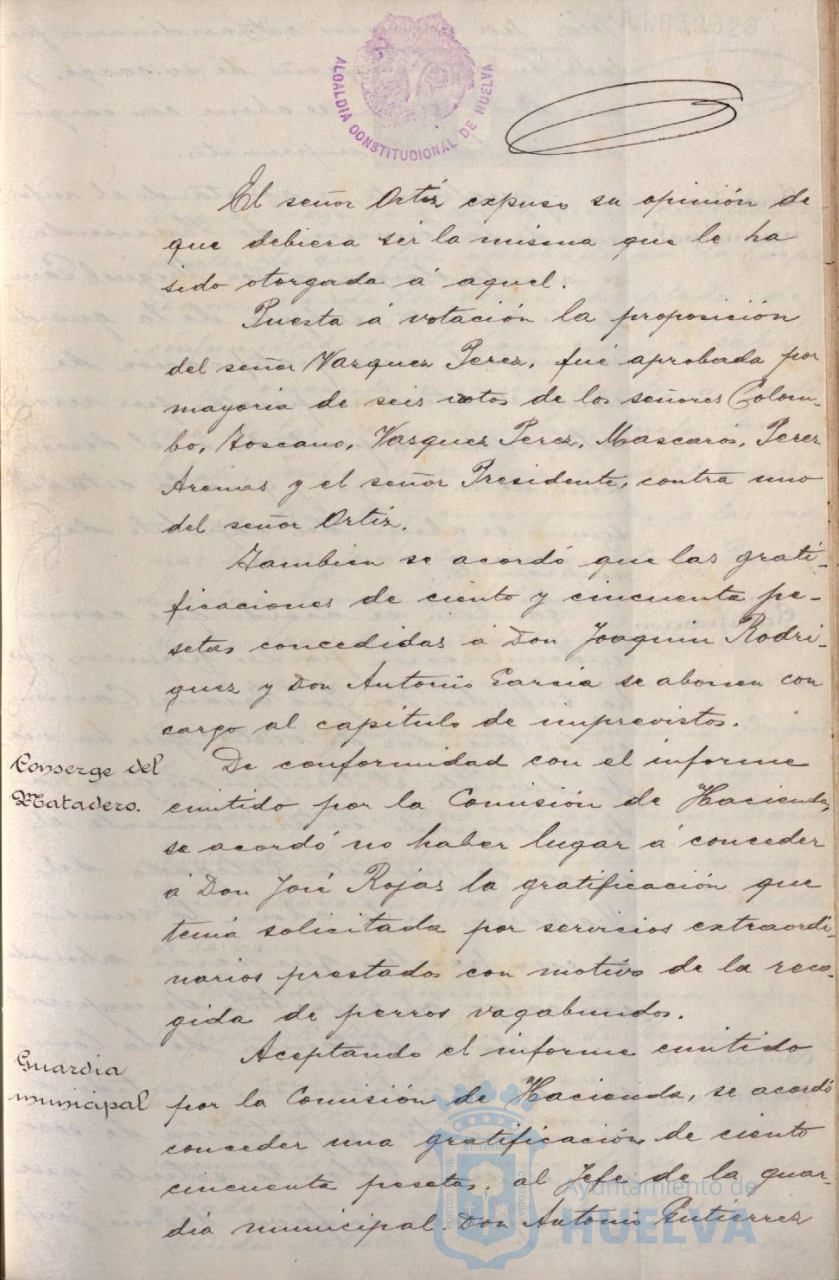 ALCALDIA CONSTITUCIONAL DE HUELVA
El señor Ortíz expuso su opinión de
que debiera ser la misma que le ha
sido otorgada á aquel.
Puesta á votación la proposición
del señor Vazquez Perez, fué aprobada por
mayoria de seis votos de los señores Colom-
bo, Toscano, Vazquez Perez, Mascarós, Perez
Arenas y el señor Presidente, contra uno
del señor Ortíz.
Tambien se acordó que las grati-
ficaciones de ciento y cincuenta pe-
setas concedidas á Don Joaquin Rodri-
guez y Don Antonio Garcia se abonen con
cargo al capítulo de imprevistos.
Conserge del
Matadero.
De conformidad con el informe
emitido por la Comisión de Hacienda,
se acordó no haber lugar á conceder
á Don José Rojas la gratificación que
tenia solicitada por servicios extraordi-
narios prestados con motivo de la reco-
gida de perros vagabundos.
Guardia
municipal
Aceptando el informe emitido
por la Comisión de Hacienda, se acordó
conceder una gratificación de ciento
cincuenta pesetas, al Jefe de la guar-
dia municipal Don Antonio Gutierrez
Ayuntamiento de
HUELVA